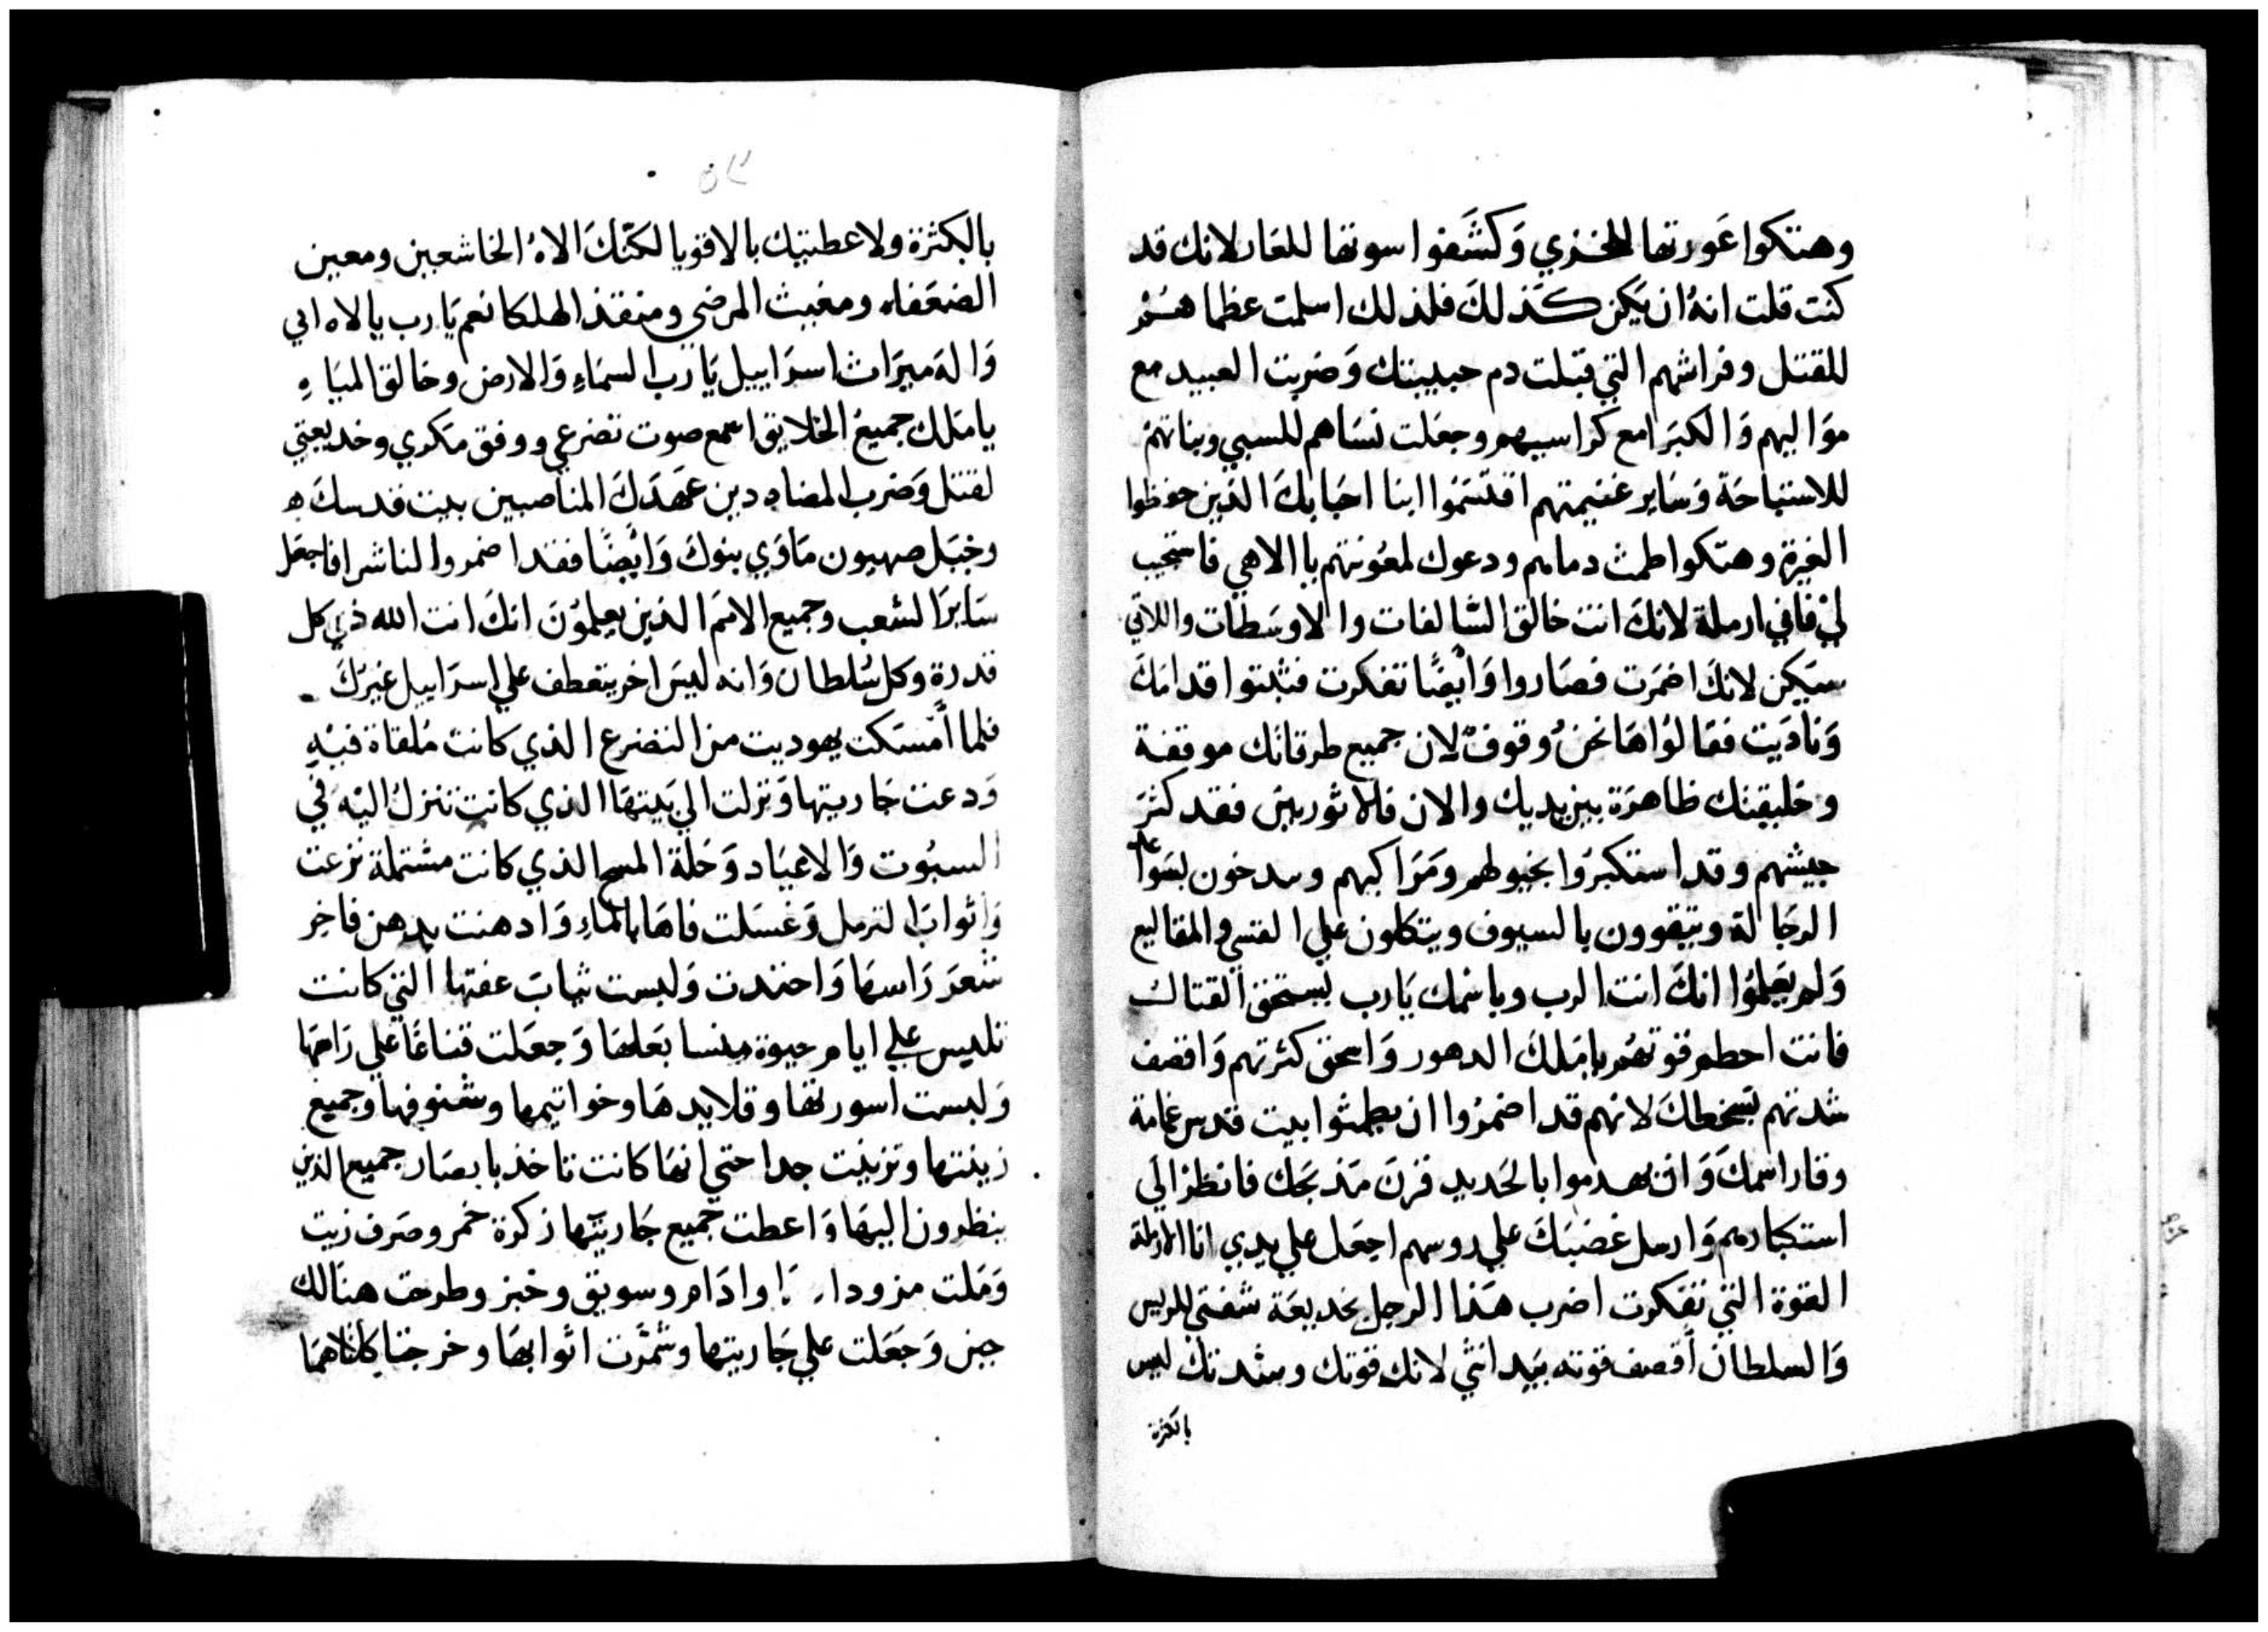 وهتكوا عَورتها للخزي وَكشَفوا سوتها للعَار لانك قد
كنت قلت انهُ ان يَكن كَذلكَ فلذلك اسلمت عظماهُمْ
للقتل وفراشهم التي قبلت دم حبيبتك وَضربت العبيد مع
موَاليهم وَالكبَرا مع كراسيهم وجعَلت نسَاهم للسبي وبناتهم
للاستباحَة وَسَاير غنيمتهم اقتسَمُوا ابنا احبَابكَ الذين حفظوا
الغيرة وهتكوا طمث دمامهم ودعوك لمعُونتهم ياالاهي فاستجيب
ليْ فاني ارملة لانكَ انت خالق السَّالفات والاوسَطات واللاتي
سيَكن لانكَ اضمَرت فصَاروا وَأيضًا تفكرت فثبتوا قدامَكَ
وَنادَيت فقالوُا هَا نحنُ وقوفٌ لان جميع طرقاتك موقفة
وخليقتك ظاهرَة بين يديك والان فالاثوريين فقد كثرَ
جيشهم وقد استكبرَوا بخيولهم وَمَرَاكبهم ويبدخون بسَواعد
الرجَالة ويتقوون بالسيوف ويتكلون علي القسي والمقاليع
وَلم يَعلمُوا انكَ انت الرب وباسْمك يَارب يستحق القتال
فانت احطم قوتهُم يامَلكَ الدهور وَاسحق كثرتهم وَاقصف
شدتهم بسَخطكَ لانهم قد اضمرُوا ان يطمثوا بيت قدس عَامة
وقار اسمكَ وَان يهدموا بالحَديد قرنَ مَذبَحك فانظرْ الي
استكبارهم وَارسل غضبَكَ علي روسهم اجعَل علي يدي انا الارملة
القوة التي تفكرت اضرب هَذا الرجل بخديعَة شفتي للريس
وَالسلطان أقصف قوته بيَد انثي لانك قوتك وشدتك ليس
بالكثرة
٥٢
بالكثرة ولا عطيتك بالاقويا لكنّكَ الاهُ الخاشعين ومعين
الضعَفاء ومغيث المرضي ومنقذ الهلكا نعم يَارب يا لاه ابي
وَالهَ ميرَاث اسرَاييل يَا رب السمَاءِ وَالارض وخالق الميَاهِ
يا مَلك جميع الخلايق اسمع صوت تضرعي ووفق مَكري وخديعتي
لقتل وَضرب المضاددين عَهدَكَ المناصبين بيت قدسكَ
وجبَل صهيون مَاوَي بنوكَ وَايضًا فقد اضمروا لنا شرا فاجعَل
سَايرَ الشعب وجميع الامَم الذين يعلموُنَ انكَ انت الله ذي كل
قدرة وكل سُلطان وَانه ليسَ اخر يتعطف علي اسرَاييل غيرَكَ
فلما أمْسَكت يهوديت من التضرع الذي كانت مُلقاة فيهِ
وَدعت جَاريتها وَنزلت الي بَيتهَا الذي كانت تنزل اليْهَ في
السبُوت وَالاعيَاد وَحَلة المسح الذي كانت مشتملة نزعت
وَاثوابَ الترمل وَغسَلت فاهَا بالمَاءِ وَادهنت بدهن فاخِر
شعَرَ رَاسهَا وَاحتذت وَلبست ثيابَ عفتها التي كانت
تلبس علي ايام حيوة منسا بَعلهَا وَجعَلت قناعًا علي رَاسهَا
وَلبست اسورتها وقلايدهَا وخواتيمها وشنوفها وجميع
زينتها وتزينت جدا حتي انهَا كانت تاخذ بابصَار جميع الذين
ينظرون اليهَا وَاعطت جَميع جَاريتها زكرة خمر وصَرف زيت
وَمَلت مزودا وادَام وسويق وخبز وطرحت هنَالك
جبن وَجَعَلت علي جَاريتها وشمَّرت اثوابهَا وخرجتا كلتاهمَا